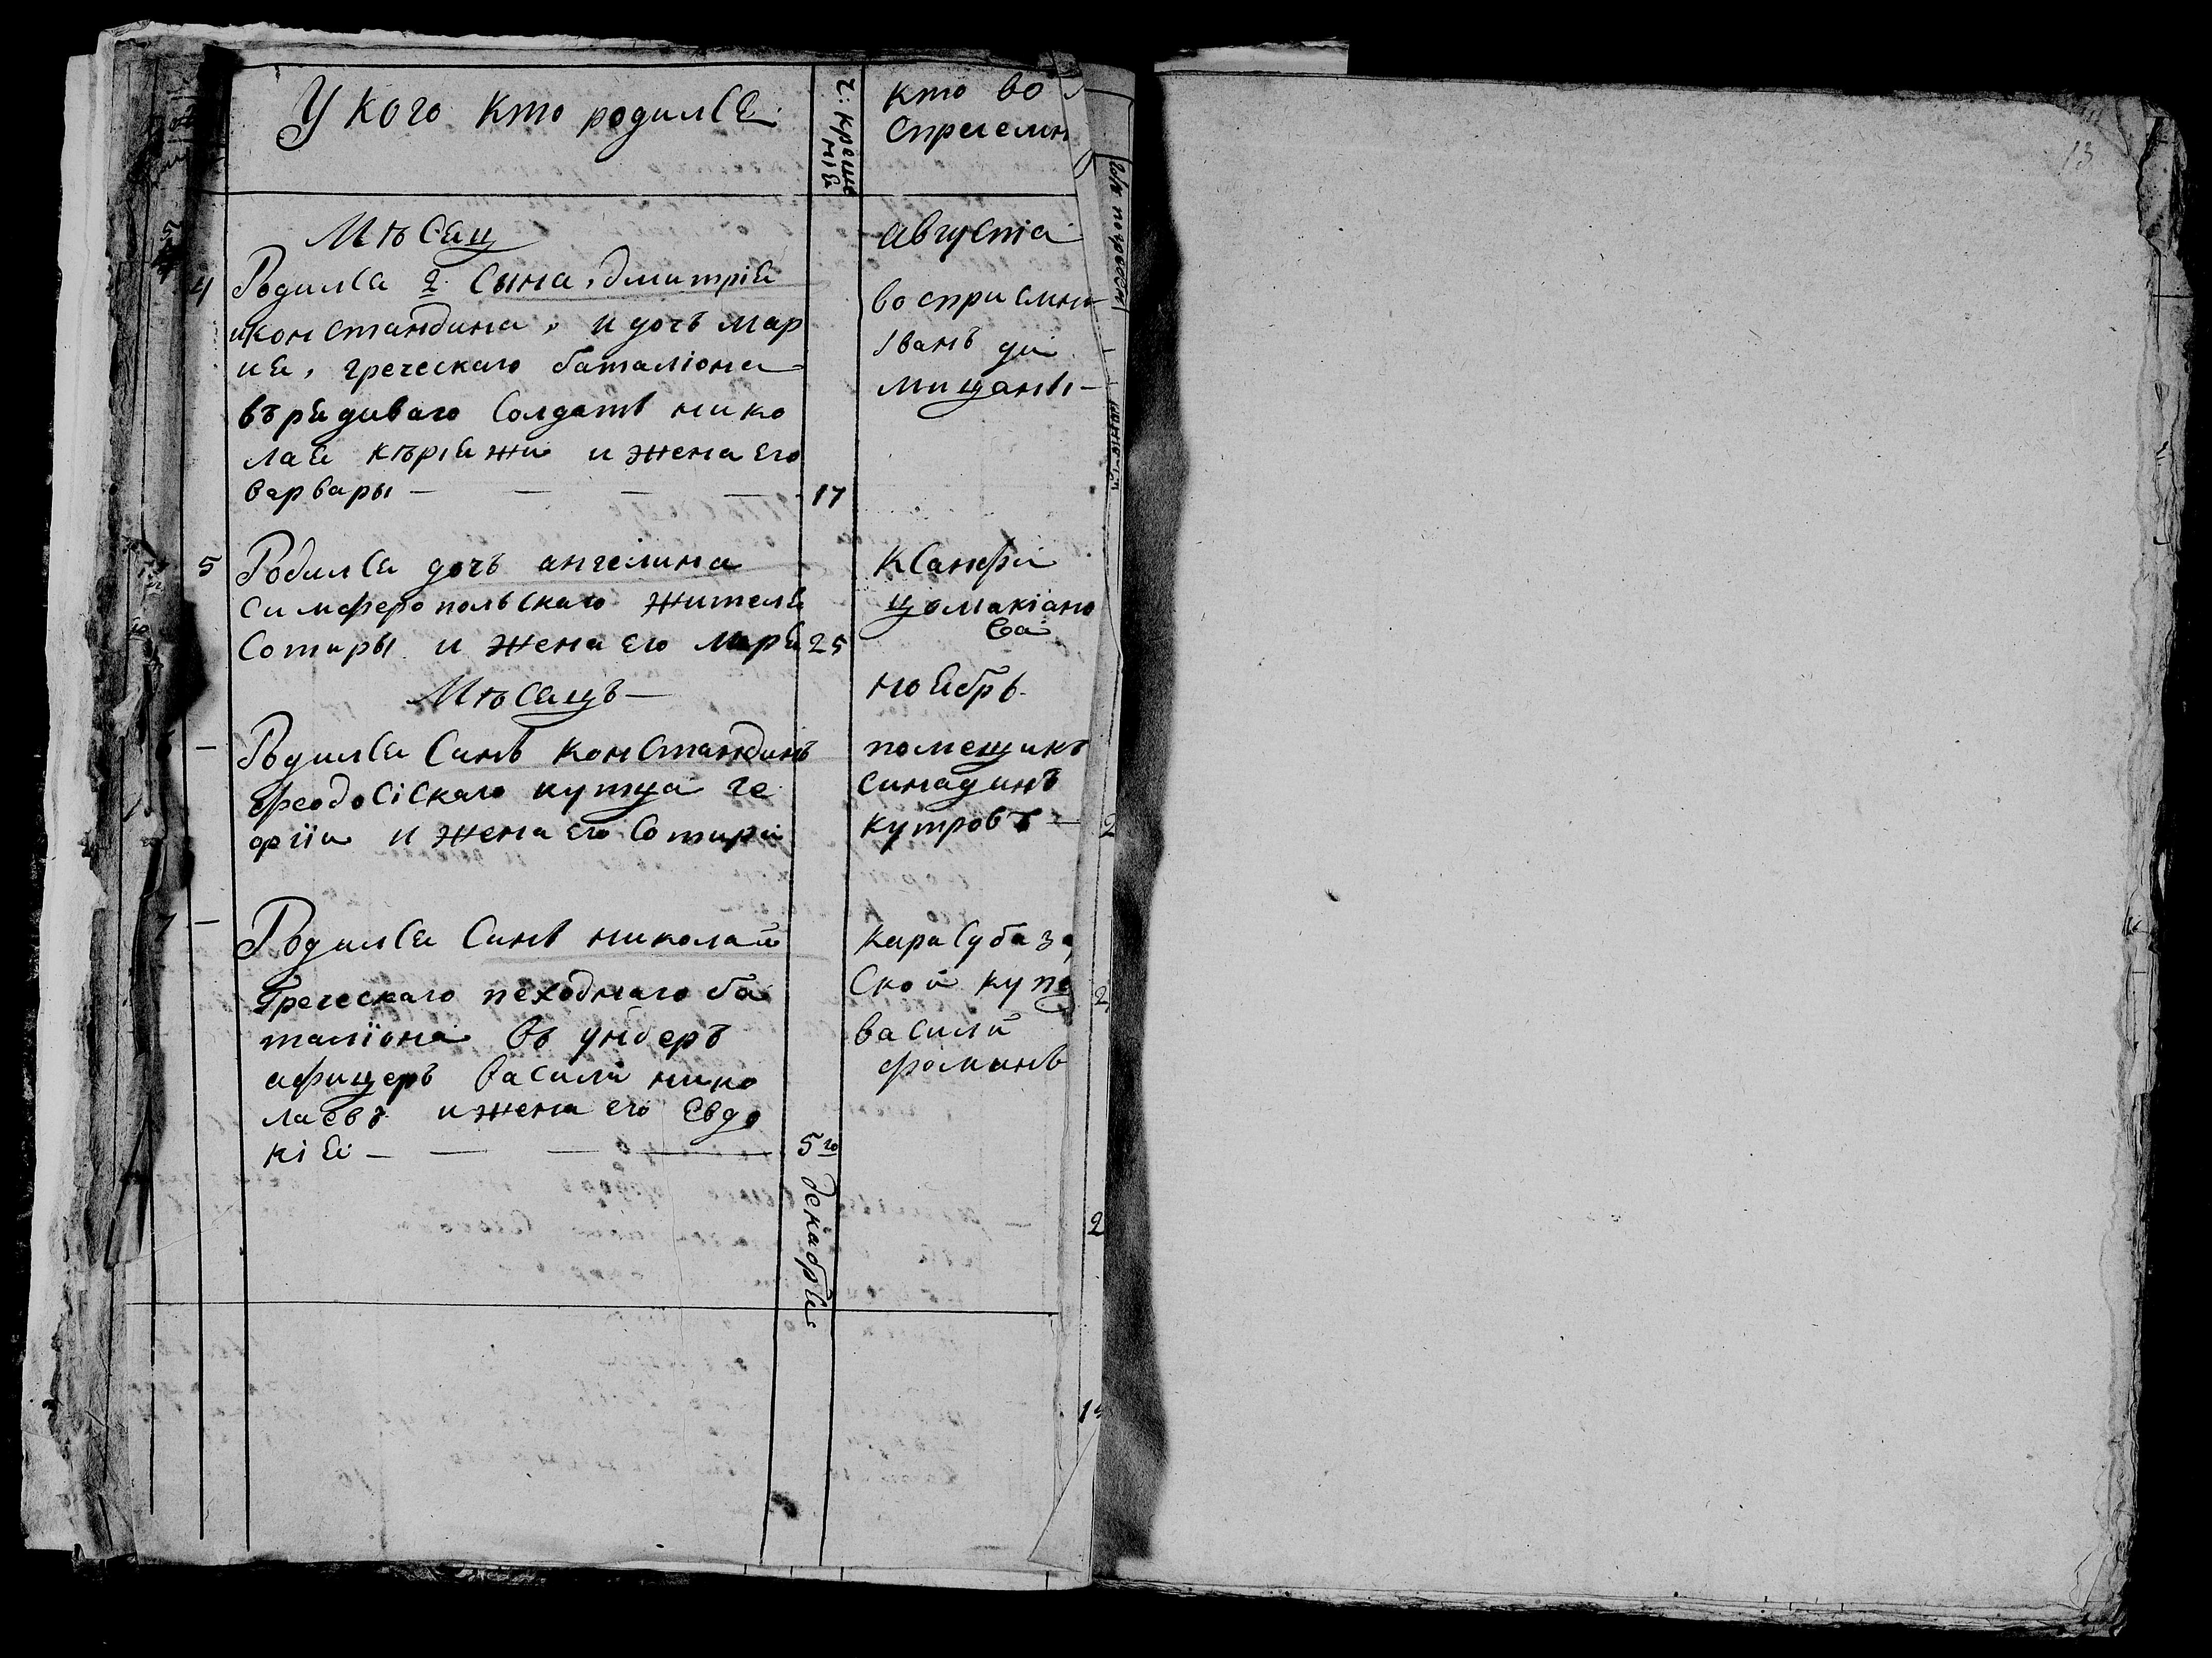 У кого кто родилсѧ
ч: креще
ніѧ
кто во
спреемн
Мѣсѧц
августа
4
Родилса 2 сына, дмитріѧ
и констандина, и дочъ мар
иѧ, греческаго баталіона
въ рѧдиваго солдатъ нико
лаѧ кѣріѧжи и жена его
варвары — — — —
17
воспри емни
Іванъ ди
мищанъ —
5
Родилсѧ дочъ ангелина
симферополскаго жителѧ
Сотиры и жена его марѧ
25
Ксанфи
цомакіано
ва
Мѣсѧцъ —
ноѧбрь
—
Родилсѧ синъ констандинъ
феодосіскаго купца ге
оргіѧ и жена его Сотири
помещикъ
синадинъ
кутровъ —
—
Родилсѧ синъ николай
Греческаго пеходнаго ба
таліона въ ундеръ
афицеръ васили нико
лаевъ и жена его Евдо
кіѧ — — — —
5го
декабрѧ
карасубаза
ской купе
василй
фоминъ
2
2
2
13